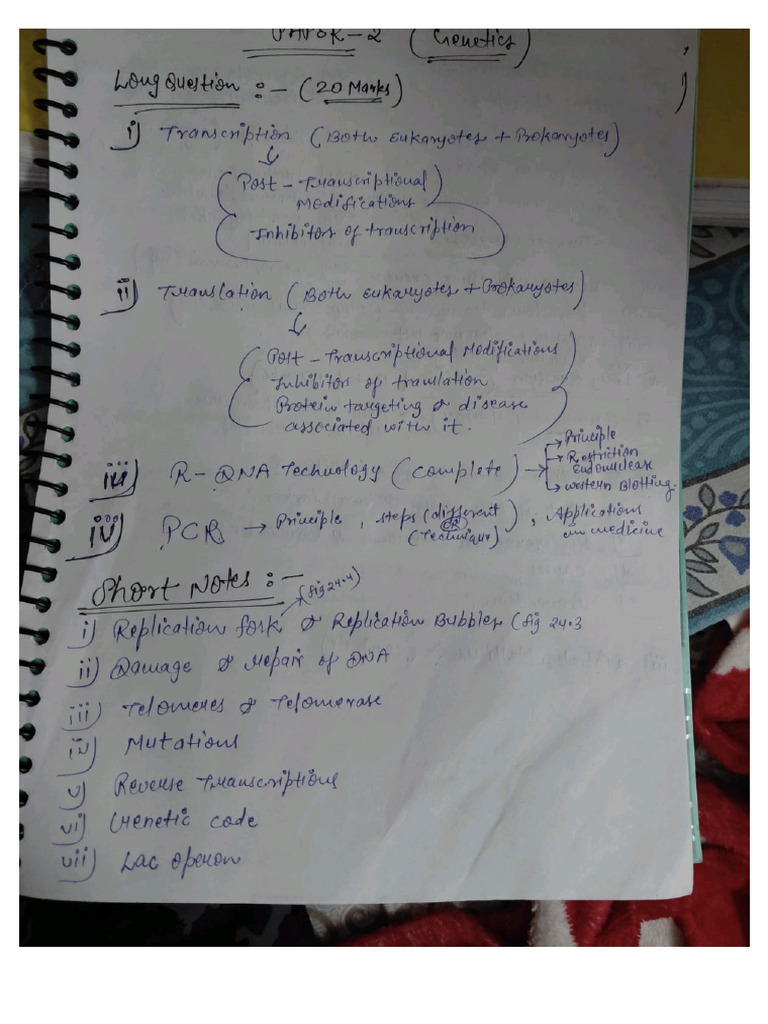 PAPER-2 (Genetics)
Long Question :- (20 Marks)
i) Transcription (Both Eukaryotes + Prokaryotes)
(Post-Transcriptional
Modifications
Inhibitor of transcription)
ii) Translation (Both Eukaryotes + Prokaryotes)
(Post-Transcriptional Modifications
Inhibitor of translation
Protein targeting & disease
associated with it.)
iii) R-DNA Technology (Complete) → Principle
→ Restriction Endonuclease
→ Western Blotting.
iv) PCR → Principle, Steps (different OR (Technique), Applications in medicine
Short Notes :-
i) Replication fork (fig 24.4) & Replication Bubbles (fig 24.3
ii) Damage & repair of DNA
iii) Telomeres & Telomerase
iv) Mutations
v) Reverse Transcriptions
vi) Genetic code
vii) Lac operon